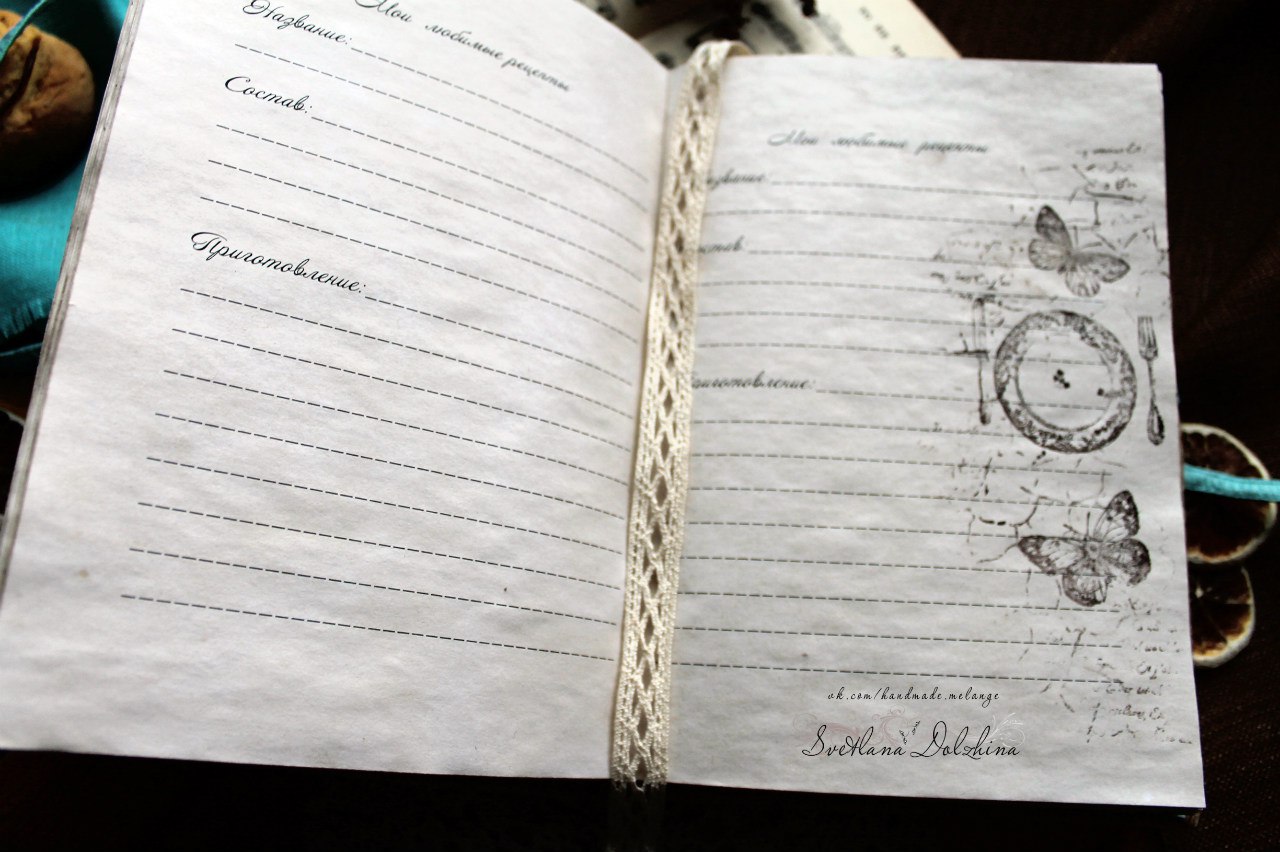 Мои любимые рецепты
Название:
Состав:
Приготовление:
Мои любимые рецепты
Название:
Состав:
Приготовление:
vk.com/handmade.melange
Svetlana Dolzhina